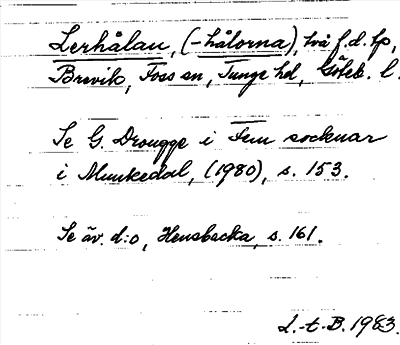 Lerhålan, (-hålorna), två f.d. tp,
Brevik, Foss sn, Tunge hd, Göteb. l.
Se G. Drougge i Fem socknar
i Munkedal, (1980), s. 153.
Se äv. d:o, Hensbacka, s. 161.
L.-t-B. 1983.